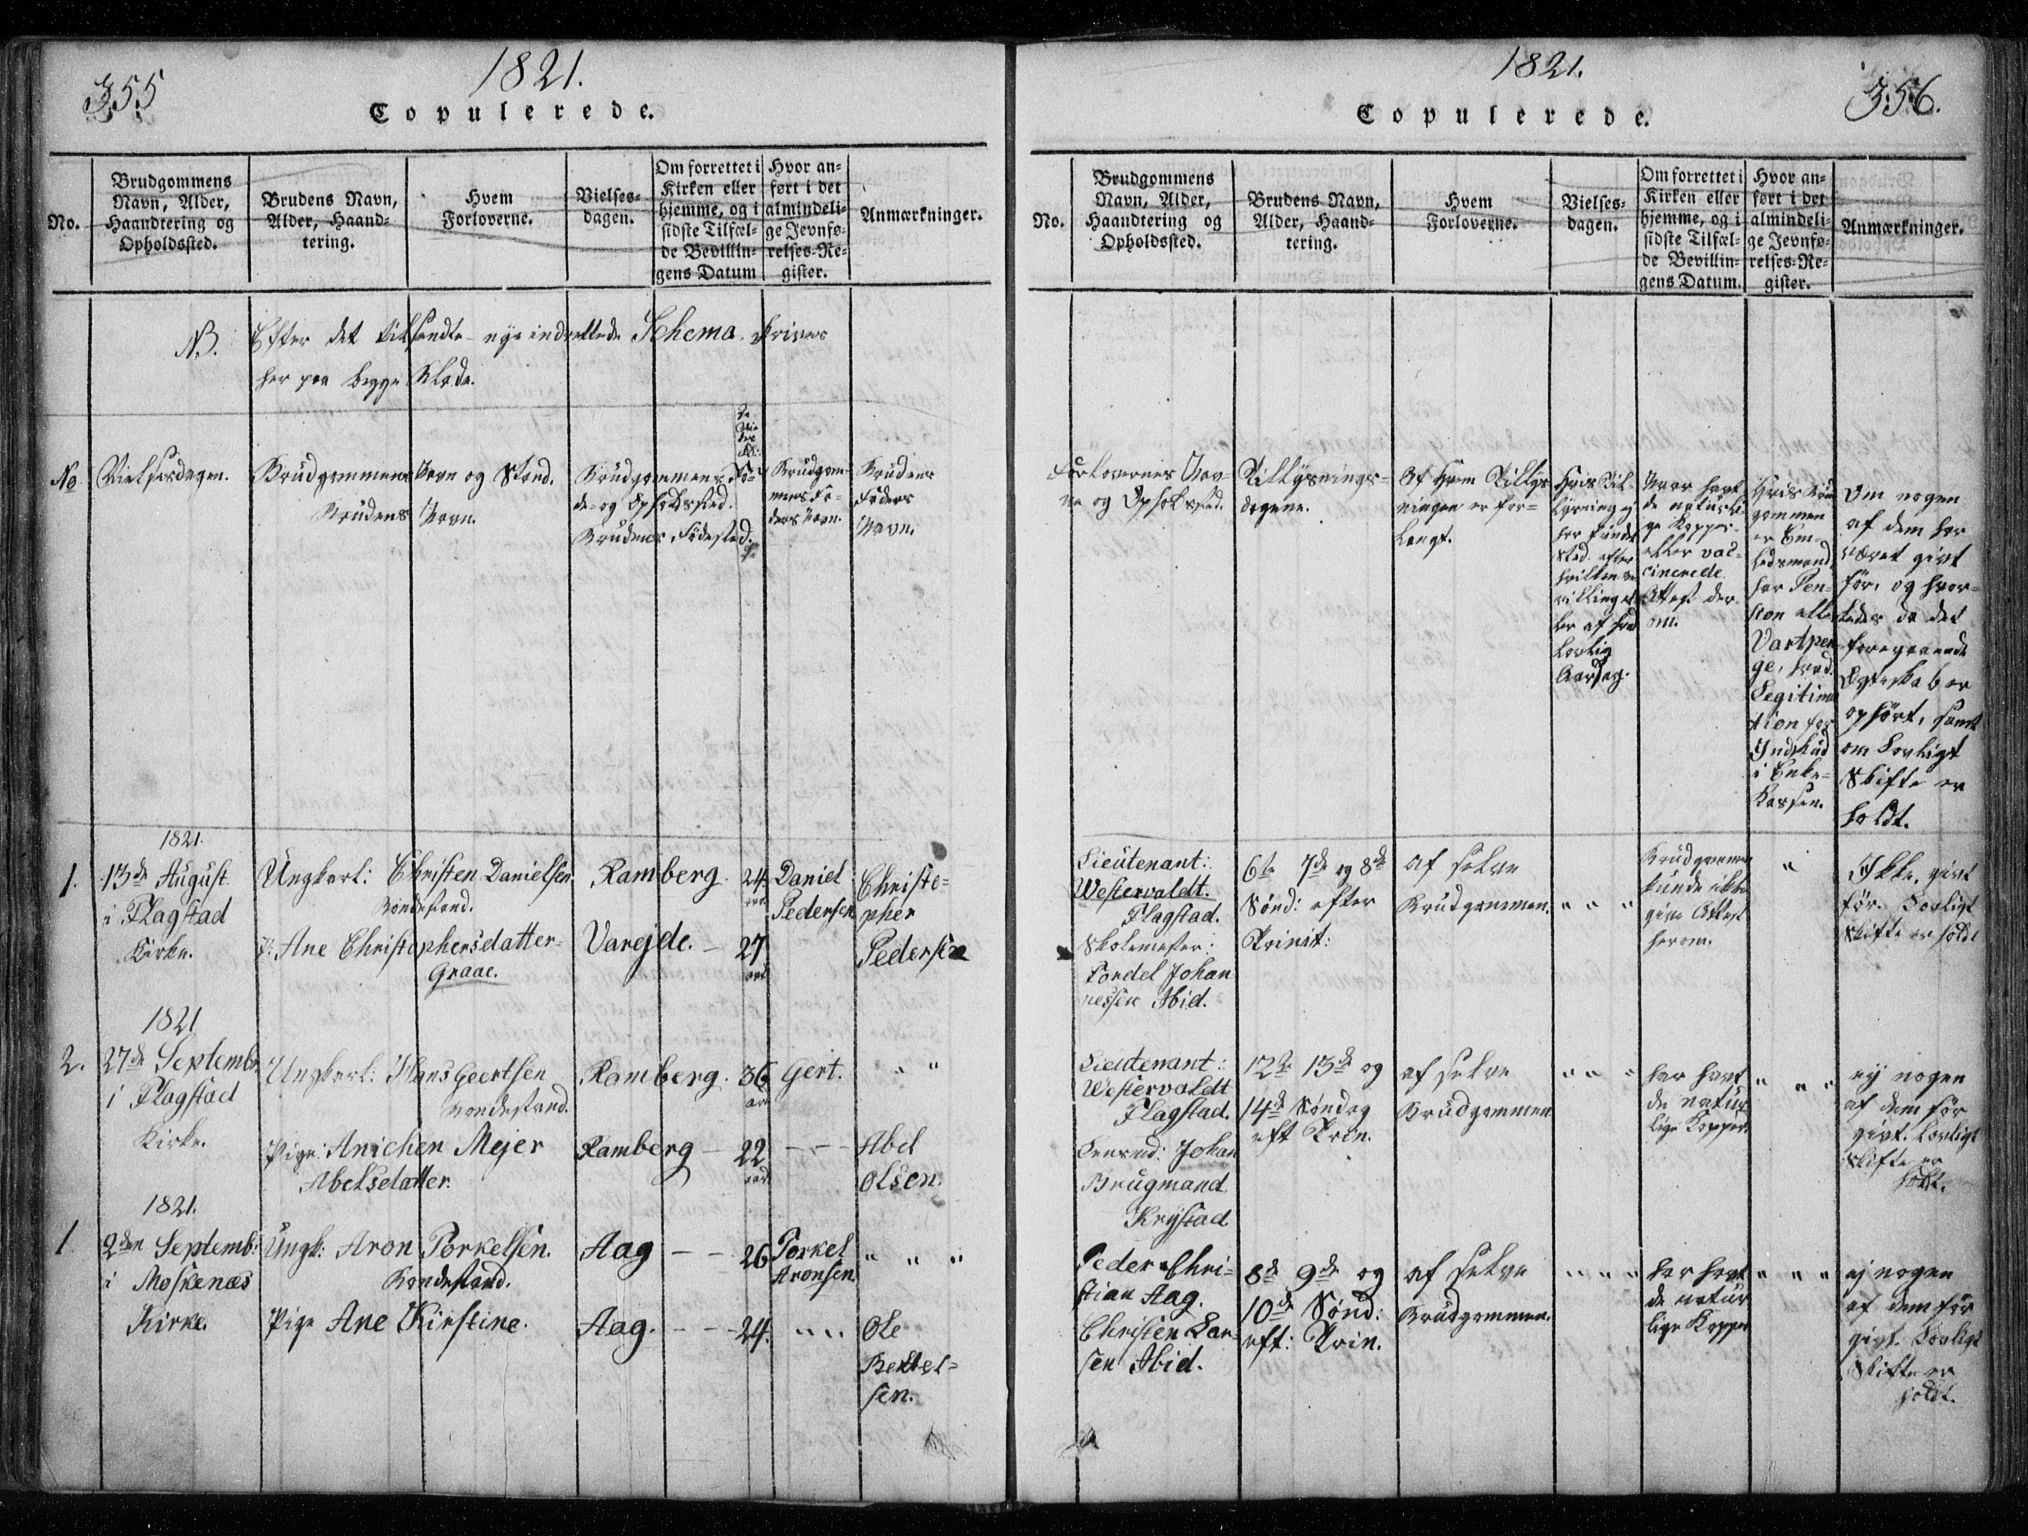 355
1821.
Copulerede.
No.
Brudgommens
Navn, Alder,
Haandtering og
Opholdssted.
Brudens Navn,
Alder, Haand-
tering.
Hvem
Forloverne.
Vielses-
dagen.
Om forrettet i
Kirken eller
hjemme, og i
sidste Tilfæl-
de Bevillin-
gens Datum
Hvor an-
ført i det
almindeli-
ge Jevnfø-
relses-Re-
gister.
Anmærkninger.
NB. Efter det tilsendte nye indrettede Schema skrives
her paa begge Blade.
No
Vielsesdagen.
Brudgommens Navn og Stand.
Brudens Navn.
Brudgommens Fø-
de- og Opholdssted.
Brudens Fødested.
Brudgom-
mens Fa-
ders Navn.
Brudens
Faders
Navn.
1821.
1. 13de August
i Flagstad
Kirke.
Ungkarl: Christen Danielsen
Bondestand.
P: Ane Christophersdatter
Graae.
Ramberg 24
aar
Varejde. — 27
aar
Daniel
Pedersen
Christo-
pher
Pedersen
1821
2. 27de Septembr
i Flagstad
Kirke.
Ungkarl: Hans Geertsen
Bondestand.
Pige: Anichen Mejer
Abelsdatter.
Ramberg. 36
aar
Ramberg — 22
aar
Gert. " "
— — Abel
Olsen.
1821.
1 2den Septemb:
i Moskenæs
Kirke.
Ungk: Aron Torkelsen.
Bondestand.
Pige Ane Kirstine.
Aag — — 26
Aag. — — 24.
Torkel
Aronsen
" " "
" " Ole
Berthel-
sen.
1821.
356.
Copulerede.
No.
Brudgommens
Navn, Alder,
Haandtering og
Opholdssted.
Brudens Navn,
Alder, Haand-
tering.
Hvem
Forloverne.
Vielses-
dagen.
Om forrettet i
Kirken eller
hjemme, og i
sidste Tilfæl-
de Bevillin-
gens Datum.
Hvor an-
ført i det
almindeli-
ge Jevnfø-
relses-Re-
gister.
Anmærkninger.
Forlovernes Nav-
ne og Opholdssted.
Tillysnings-
dagene.
Af Hvem Tillys-
ningen er for-
langt.
Hvis Til-
lysning ej
har fundet
Sted, efter
hvilken Be-
villing el-
ler af hvad
lovlig
Aarsag.
Hvor havt
de naturli-
ge Kopper
eller vac-
cinerede
Attest der-
om.
Hvis Brud-
gommen
er Em-
bedsmand,
har Pen-
sion eller
Vartpen-
ge, hvad
Legitima-
tion for
Indskud
i Enke-
Kassen.
Om nogen
af dem har
været givt
før, og hvor-
ledes da det
foregaaende
Egteskab er
ophørt, samt
om lovligt
Skifte er
holdt.
Lieutenant:
Westervaldt.
Flagstad.
Skolemester:
Tordel Johan
nessen Ibid.
6te 7de og 8de
Sønd: efter
Trinit:
af selve
Brudgommen.
" " "
Brudgommen
kunde ikke
give Attest
herom.
"
Ikke givt
før. Lovligt
Skifte er holdt
Lieutenant:
Westervaldt
Flagstad.
Johan
Brugmand
Krystad
12te 13de og
14de Søndag
eft Trin.
af selve
Brudgommen
" " "
har havt
de natur
lige Kopper.
" " "
ej nogen
af dem før
givt. Lovligt
Skifte er
holdt.
Peder Chri-
stian Aag.
Christen Lar-
sen Ibid.
8de 9de og
10de Sønd:
eft: Trin.
af selve
Brudgommen.
" " "
har havt
de natur
lige Kopper
" " "
ej nogen
af dem før
givt. Lovligt
Skifte er
holdt.